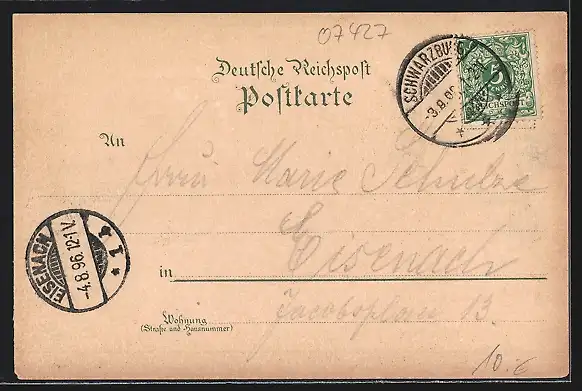 07427
Deutsche Reichspost
Postkarte
SCHWARZBURG
-3.8.96.
REICHSPOST
5
An
Frau Marie Schulze
Eisenach
in
Jacobsplan 13.
Wohnung
(Straße und Hausnummer)
EISENACH
-4.8.96.12-1V.
* 1 *
10.-€